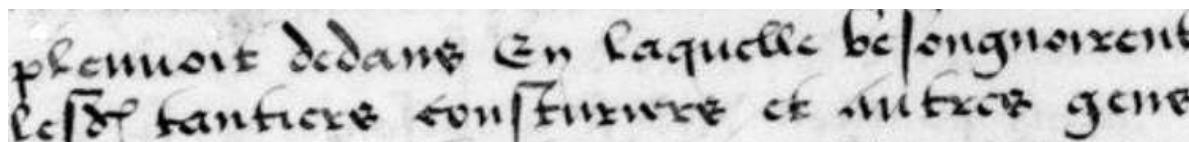 plouuoit dedans En laquelle besongnoirent
lesd tantiers cousturiers et autres gens